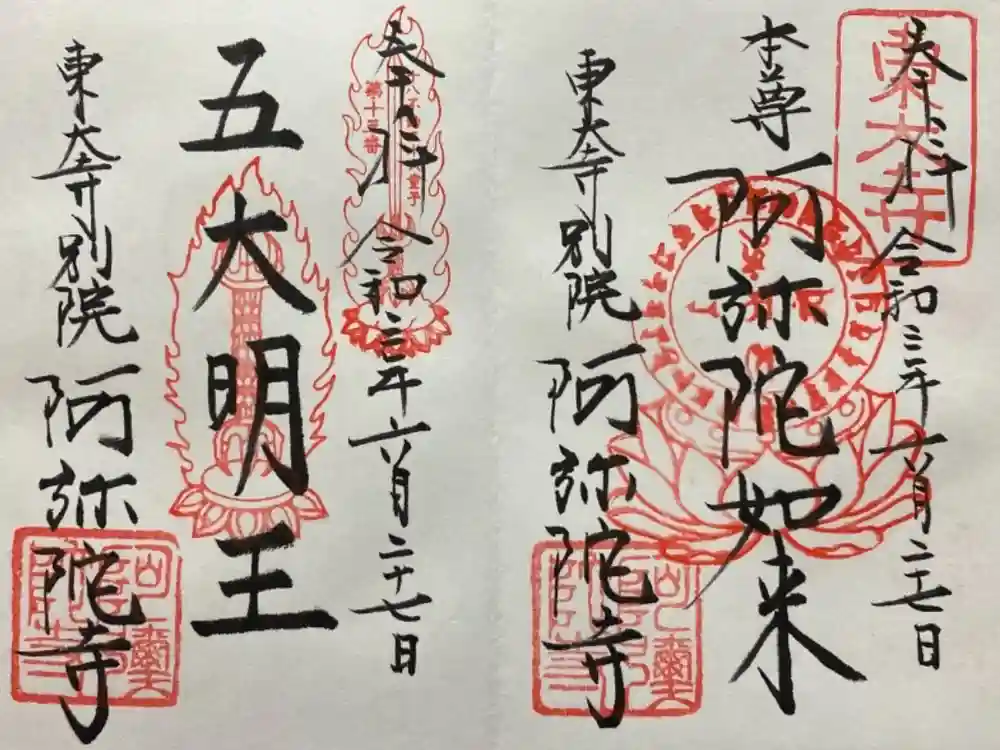 奉拝 令和三年六月二十七日
本尊 阿弥陀如来
東大寺別院 阿弥陀寺
東大寺
奉拝 令和三年六月二十七日
第十三番
童子
五大明王
東大寺別院 阿弥陀寺